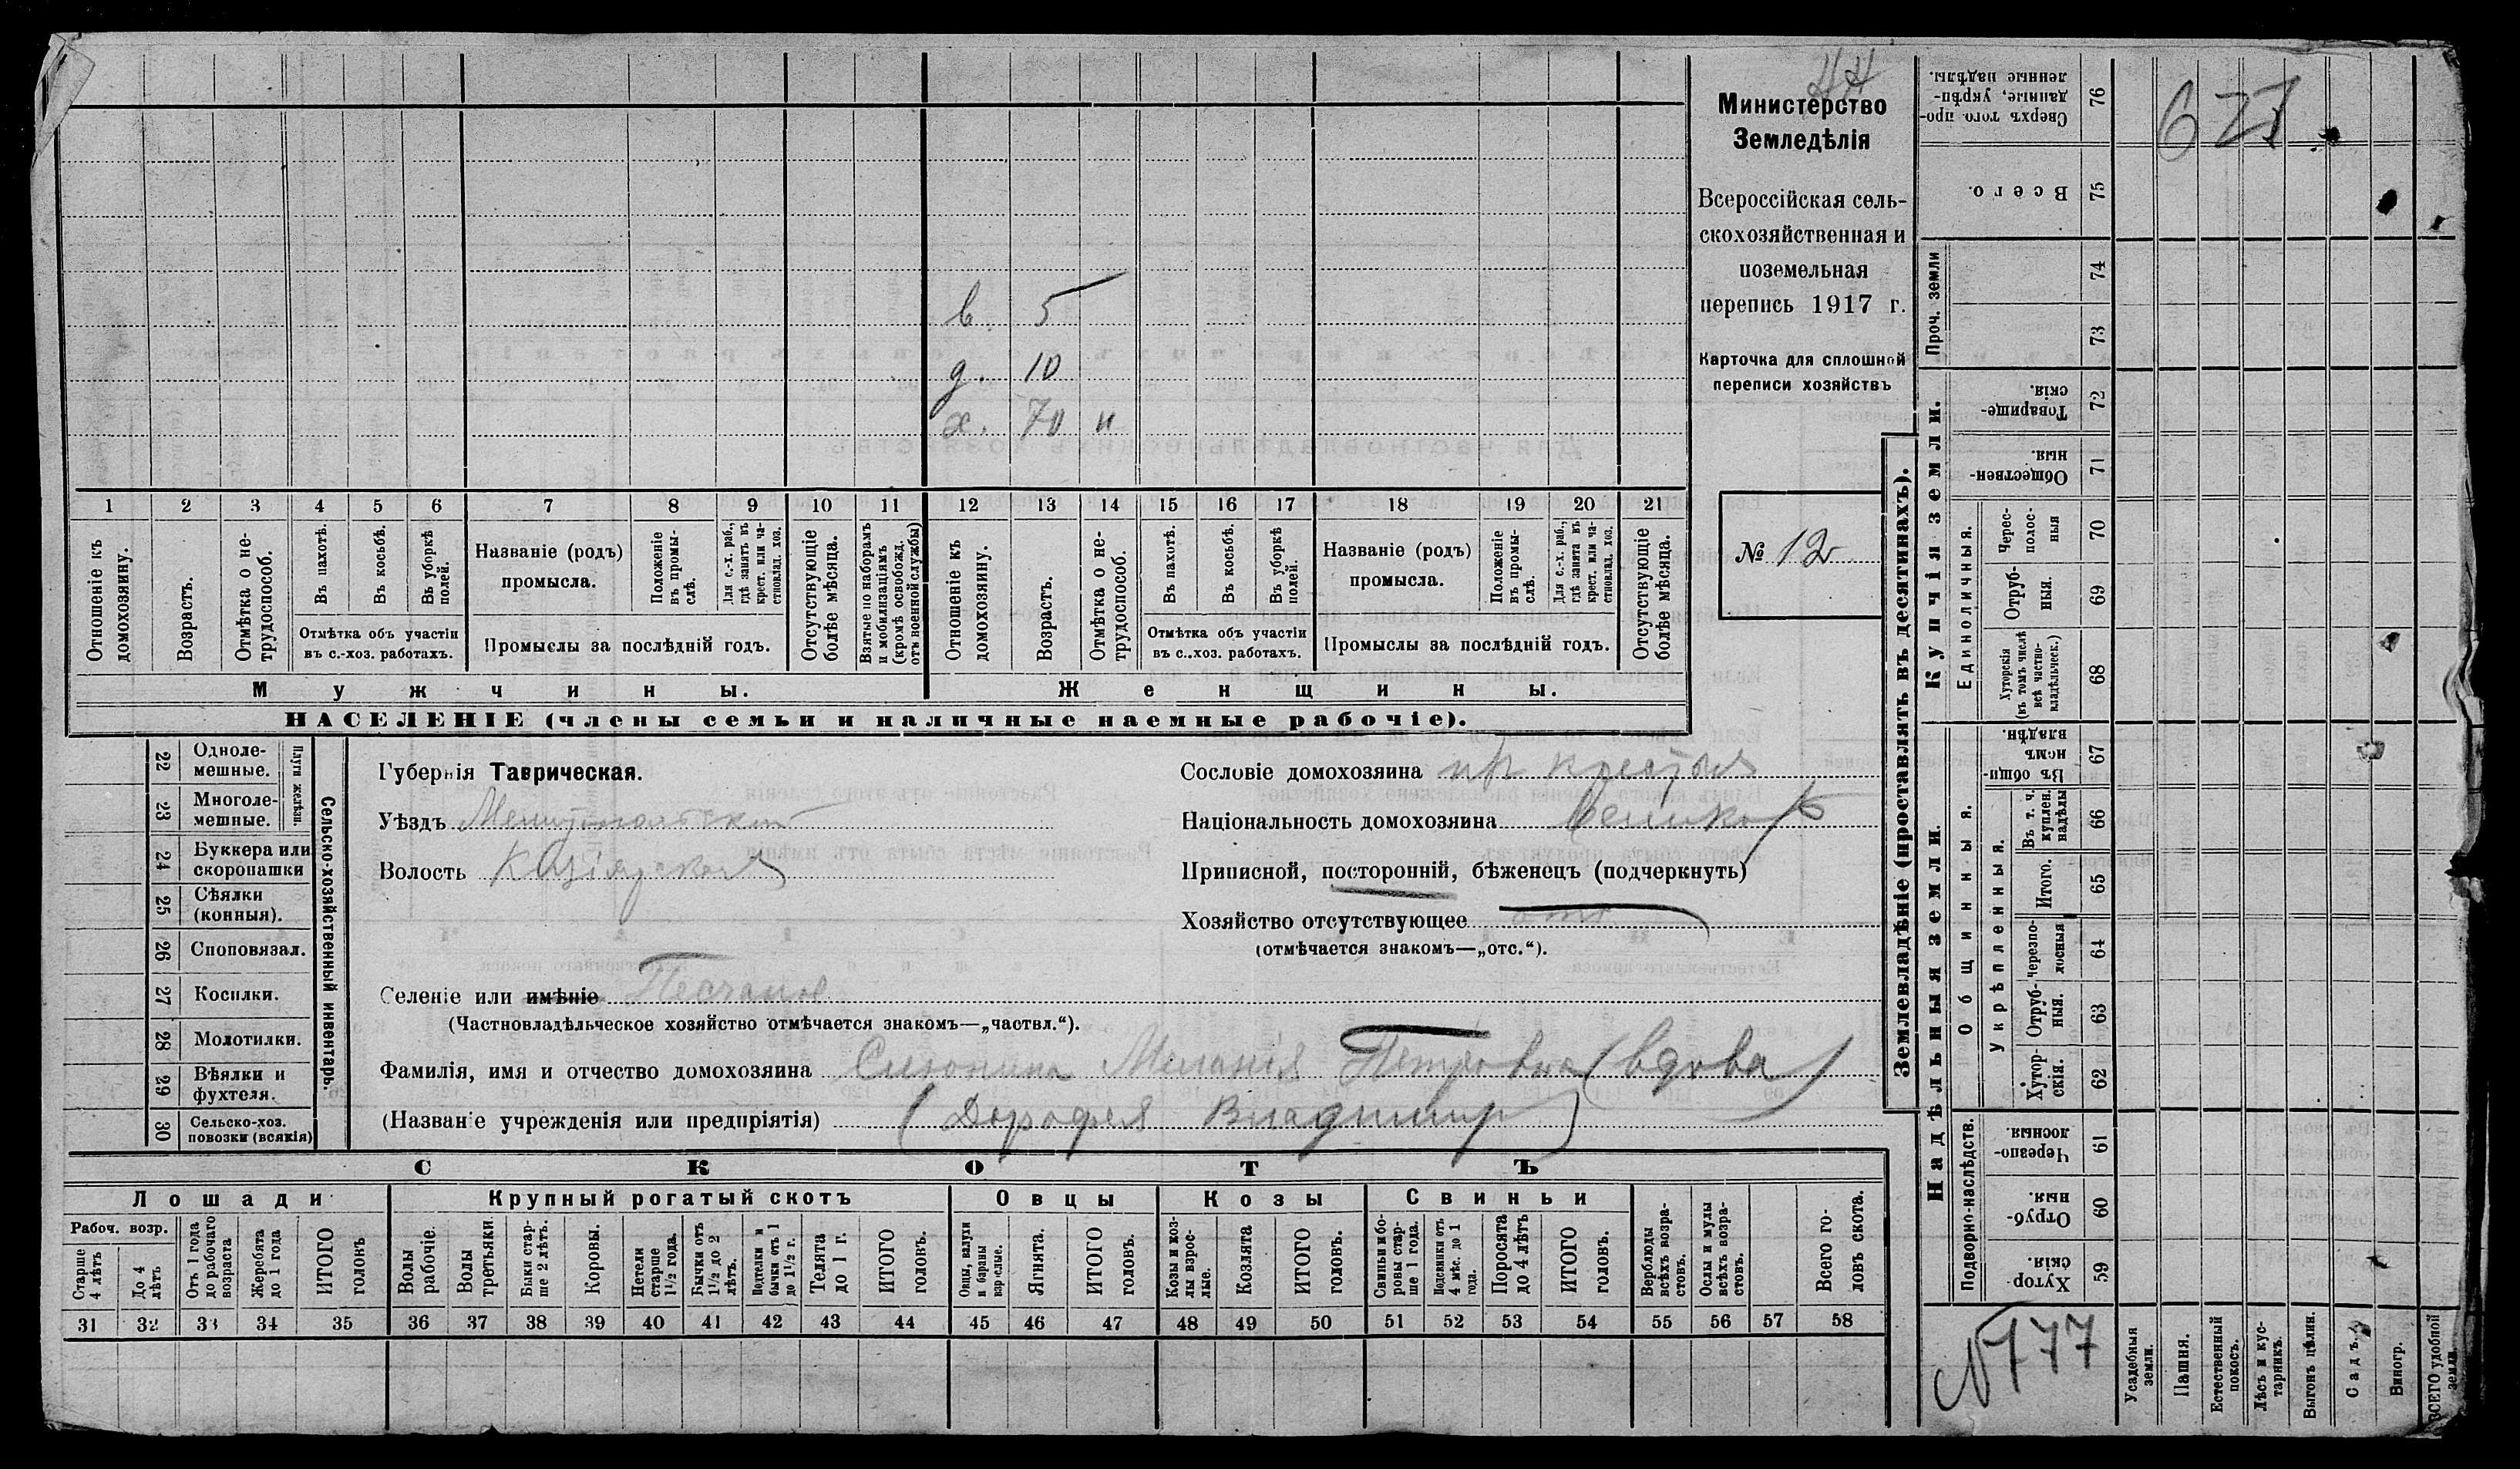 НН
Министерство
Земледѣлія
Всероссійская сель-
скохозяйственная и
поземельная
перепись 1917 г.
Карточка для сплошной
переписи хозяйствъ
№ 12
в. 5
д. 10
х. 70 н
1 2 3 4 5 6 7 8 9 10 11 12 13 14 15 16 17 18 19 20 21
Отношеніе къ домохозяину.
Возрастъ.
Отмѣтка о не-трудоспособ.
Въ пахотѣ.
Въ косьбѣ.
Въ уборкѣ полей.
Отмѣтка объ участіи въ с.-хоз. работахъ.
Названіе (родъ) промысла.
Положеніе въ промы-слѣ.
Для с.-х. раб., гдѣ занятъ въ крест. или ча-стновлад. хоз.
Промыслы за послѣдній годъ.
Отсутствующіе болѣе мѣсяца.
Взятые по наборамъ и мобилизаціямъ (кромѣ освобожд. отъ военной службы)
Отношеніе къ домохозяину.
Возрастъ.
Отмѣтка о не-трудоспособ.
Въ пахотѣ.
Въ косьбѣ.
Въ уборкѣ полей.
Отмѣтка объ участіи въ с.-хоз. работахъ.
Названіе (родъ) промысла.
Положеніе въ промы-слѣ.
Для с.-х. раб., гдѣ занята въ крест. или ча-стновлад. хоз.
Промыслы за послѣдній годъ.
Отсутствующіе болѣе мѣсяца.
Мужчины.
Женщины.
НАСЕЛЕНІЕ (члены семьи и наличные наемные рабочіе).
22 Одноле-мешные.
23 Многоле-мешные.
Плуги желѣзн.
24 Буккера или скоропашки
25 Сѣялки (конныя).
26 Споповязал.
27 Косилки.
28 Молотилки.
29 Вѣялки и фухтеля.
30 Сельско-хоз. повозки (всякія)
Сельско-хозяйственный инвентарь.
Губернія Таврическая.
Уѣздъ Мелитопольскій
Волость
Сословіе домохозяина кр крестьян
Національность домохозяина
Приписной, посторонній, бѣженецъ (подчеркнуть)
Хозяйство отсутствующее отс
(отмѣчается знакомъ—„отс.“).
Селеніе или имѣніе Песчаное
(Частновладѣльческое хозяйство отмѣчается знакомъ—„частвл.“).
Фамилія, имя и отчество домохозяина Миланія Петровна (вдова)
(Названіе учрежденія или предпріятія) (Дорофея Владимир)
СКОТЪ
Лошади
Крупный рогатый скотъ
Овцы
Козы
Свиньи
Рабоч. возр.
Старше 4 лѣтъ
До 4 лѣтъ
Отъ 1 года до рабочаго возраста
Жеребята до 1 года
ИТОГО головъ
Волы рабочіе.
Волы третьяки.
Быки стар-ше 2 лѣтъ.
Коровы.
Нетели старше 1 1/2 года.
Бычки отъ 1 1/2 до 2 лѣтъ.
Подтелки и бычки отъ 1 до 1 1/2 г.
Телята до 1 г.
ИТОГО головъ.
Овцы, валухи и бараны взрослые.
Ягнята.
ИТОГО головъ.
Козы и коз-лы взрос-лые.
Козлята
ИТОГО головъ.
Свиньи и бо-ровы стар-ше 1 года.
Подсвинки отъ 4 мѣс. до 1 года.
Поросята до 4 лѣтъ
ИТОГО головъ.
Верблюды всѣхъ возра-стовъ.
Ослы и мулы всѣхъ возра-стовъ.
Всего го-ловъ скота.
31 32 33 34 35 36 37 38 39 40 41 42 43 44 45 46 47 48 49 50 51 52 53 54 55 56 57 58
Землевладѣніе (проставлять въ десятинахъ).
Купчія земли.
Надѣльныя земли.
Сверхъ того про-данные, укрѣп-ленные надѣлы. 76
Всего. 75
Проч. земли
74
73
Товарище-скія. 72
Обществен-ныя. 71
Единоличныя.
Черес-полос-ныя 70
Отруб-ныя. 69
Хуторскія (въ томъ числѣ всѣ частно-владѣльческ.) 68
Общинныя.
Въ общи-номъ владѣн. 67
Укрѣпленныя.
Въ т. ч. куплен. надѣлы 66
Итого. 65
Черезпо-лосныя 64
Отруб-ныя. 63
Хутор-скія. 62
Подворно-наслѣдств.
Черезпо-лосныя. 61
Отруб-ныя. 60
Хутор-скія. 59
627
N 777
Усадебныя земли.
Пашня.
Естественный покосъ.
Лѣсъ и кус-тарникъ.
Выгонъ цѣлин.
Садъ.
Виногр.
ВСЕГО удобной земли.